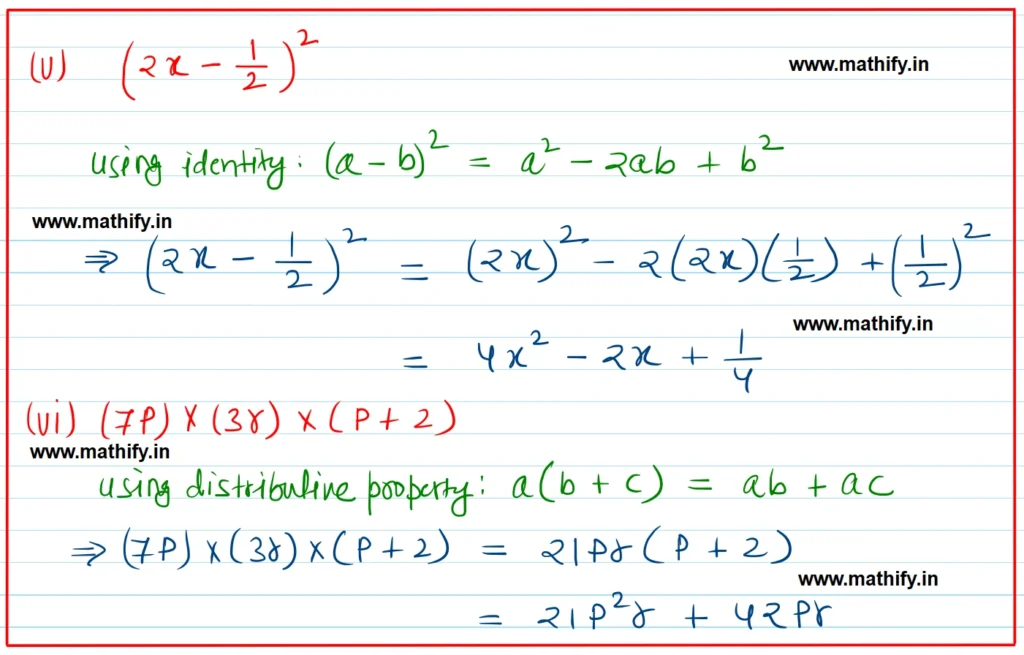 (v) (2x - 1/2)²
www.mathify.in
using identity: (a - b)² = a² - 2ab + b²
www.mathify.in
⇒ (2x - 1/2)² = (2x)² - 2(2x)(1/2) + (1/2)²
www.mathify.in
= 4x² - 2x + 1/4
(vi) (7P) × (3r) × (P + 2)
www.mathify.in
using distributive property: a(b + c) = ab + ac
⇒ (7P) × (3r) × (P + 2) = 21Pr (P + 2)
www.mathify.in
= 21P²r + 42Pr